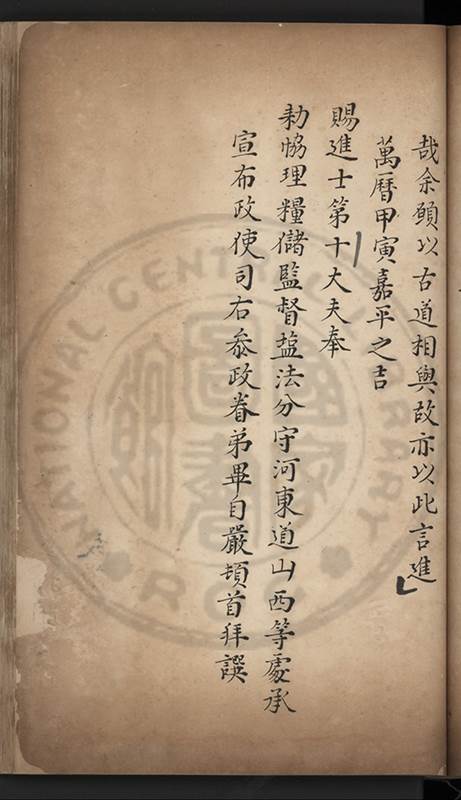 哉余願以古道相與故亦以此言進
萬曆甲寅嘉平之吉
賜進士第十大夫奉
勑恊理糧儲監督塩法分守河東道山西等處承
宣布政使司右叅政眷弟畢自嚴頓首拜譔
NATIONAL CENTRAL LIBRARY